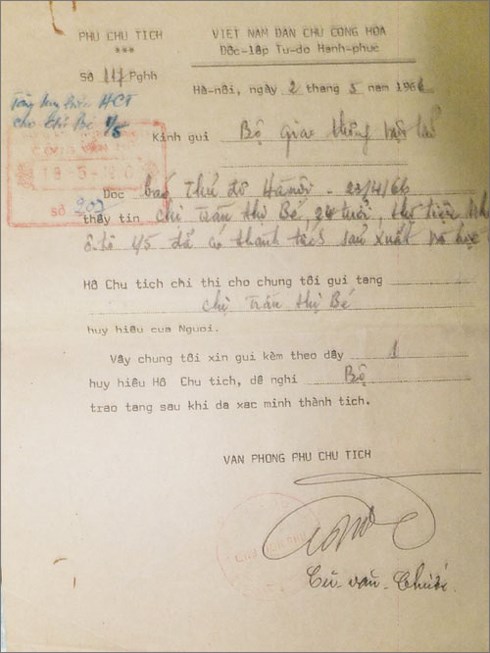 PHU CHU TICH
***
Số 117 Pghh
VIET NAM DAN CHU CONG HOA
Dôc-lâp Tu-do Hanh-phuc
Hà-nôi, ngày 2 thang 5 nam 1966
Tặng huy hiệu HCT
cho chị Bé 1/5
Số 202
Kinh gui Bộ giao thông vận tải
Doc báo Thủ đô Hànội - 23/4/66
thây tin chị Trần thị Bé, 24 tuổi, thợ tiện
ô-tô 1/5 đã có thành tích sản xuất
Hô Chu tich chi thi cho chung tôi gui tang
chị Trần thị Bé
huy hiêu cua Nguoi.
Vây chung tôi xin gui kèm theo dây 1
huy hiêu Hô Chu tich, dê nghi Bộ
trao tang sau khi da xac minh thành tich.
VAN PHONG PHU CHU TICH